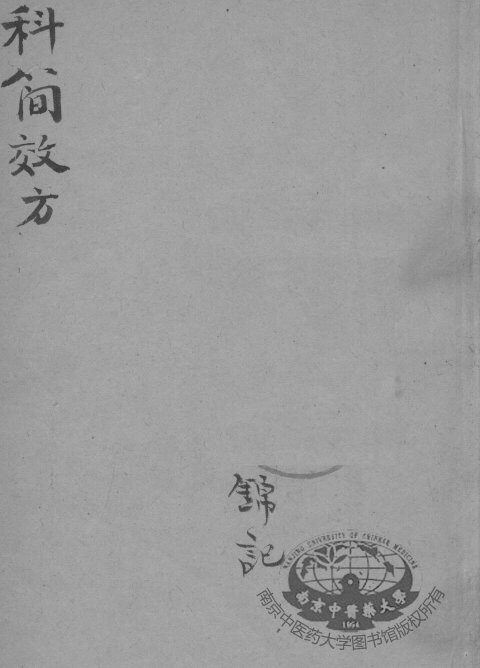 科简效方
錦記
NANJING UNIVERSITY OF CHINESE MEDICINE
南京中醫藥大學
1954
南京中医药大学图书馆版权所有